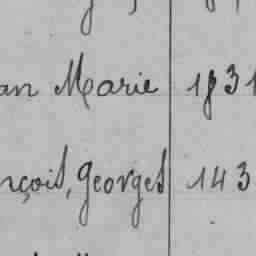 an Marie 1831
nçois, Georges 143